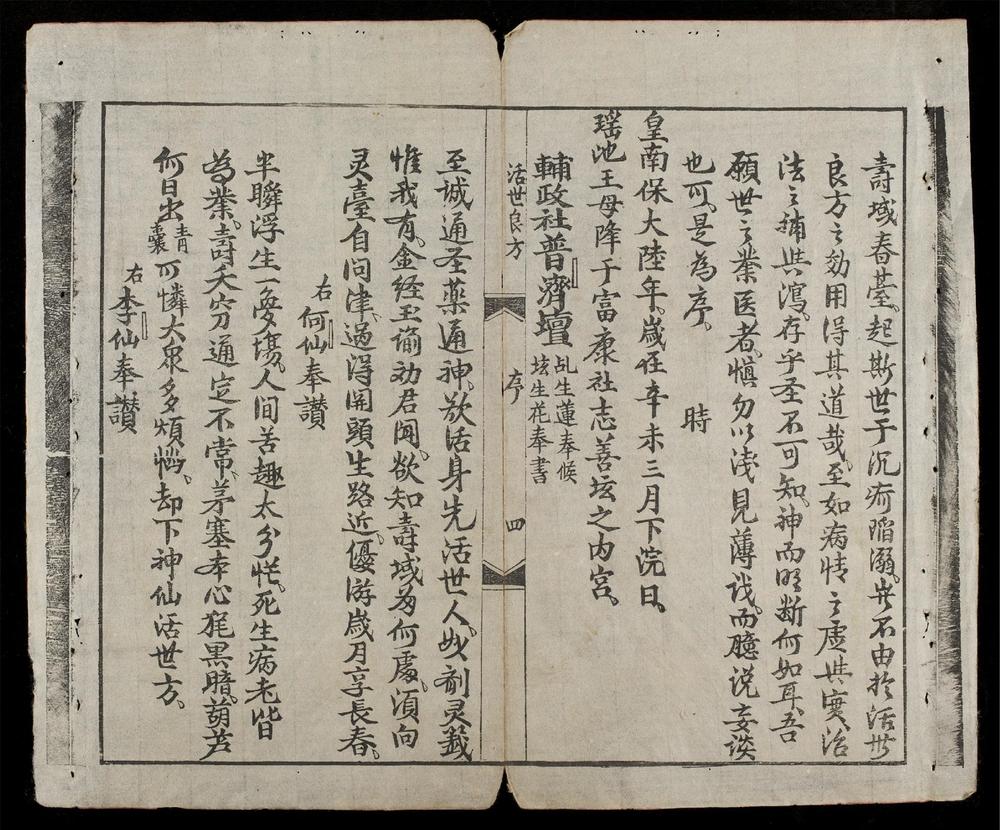 壽域春臺。起斯世于沉疴陷溺。豈不由於活世
良方之効用得其道哉。至如病情之虛與實。治
法之補與瀉。存乎圣不可知。神而明断何如耳。吾
願世之業医者。慎勿以浅見薄识。而臆说妄谈
也可。是為序。 時
皇南保大陸年。歲在辛未三月下浣日。
瑶池王母降于富康社志善坛之内宫。
輔政社普濟壇 乩生蓮奉候
坛生花奉書
活世良方 序 四
至誠通圣薬通神。欲活身先活世人。妙剤灵籤
惟我有。金经玉谕劝君闻。欲知壽域為何處。須向
灵臺自问津。過得関頭生路近。優游歲月享長春。
右何仙奉讃
半瞬浮生一夢塲。人间苦趣太分忙。死生病老皆
為業。壽夭穷通定不常。茅塞本心寔黒暗。葫芦
何日出青囊。可憐大衆多煩惱。却下神仙活世方。
右李仙奉讃